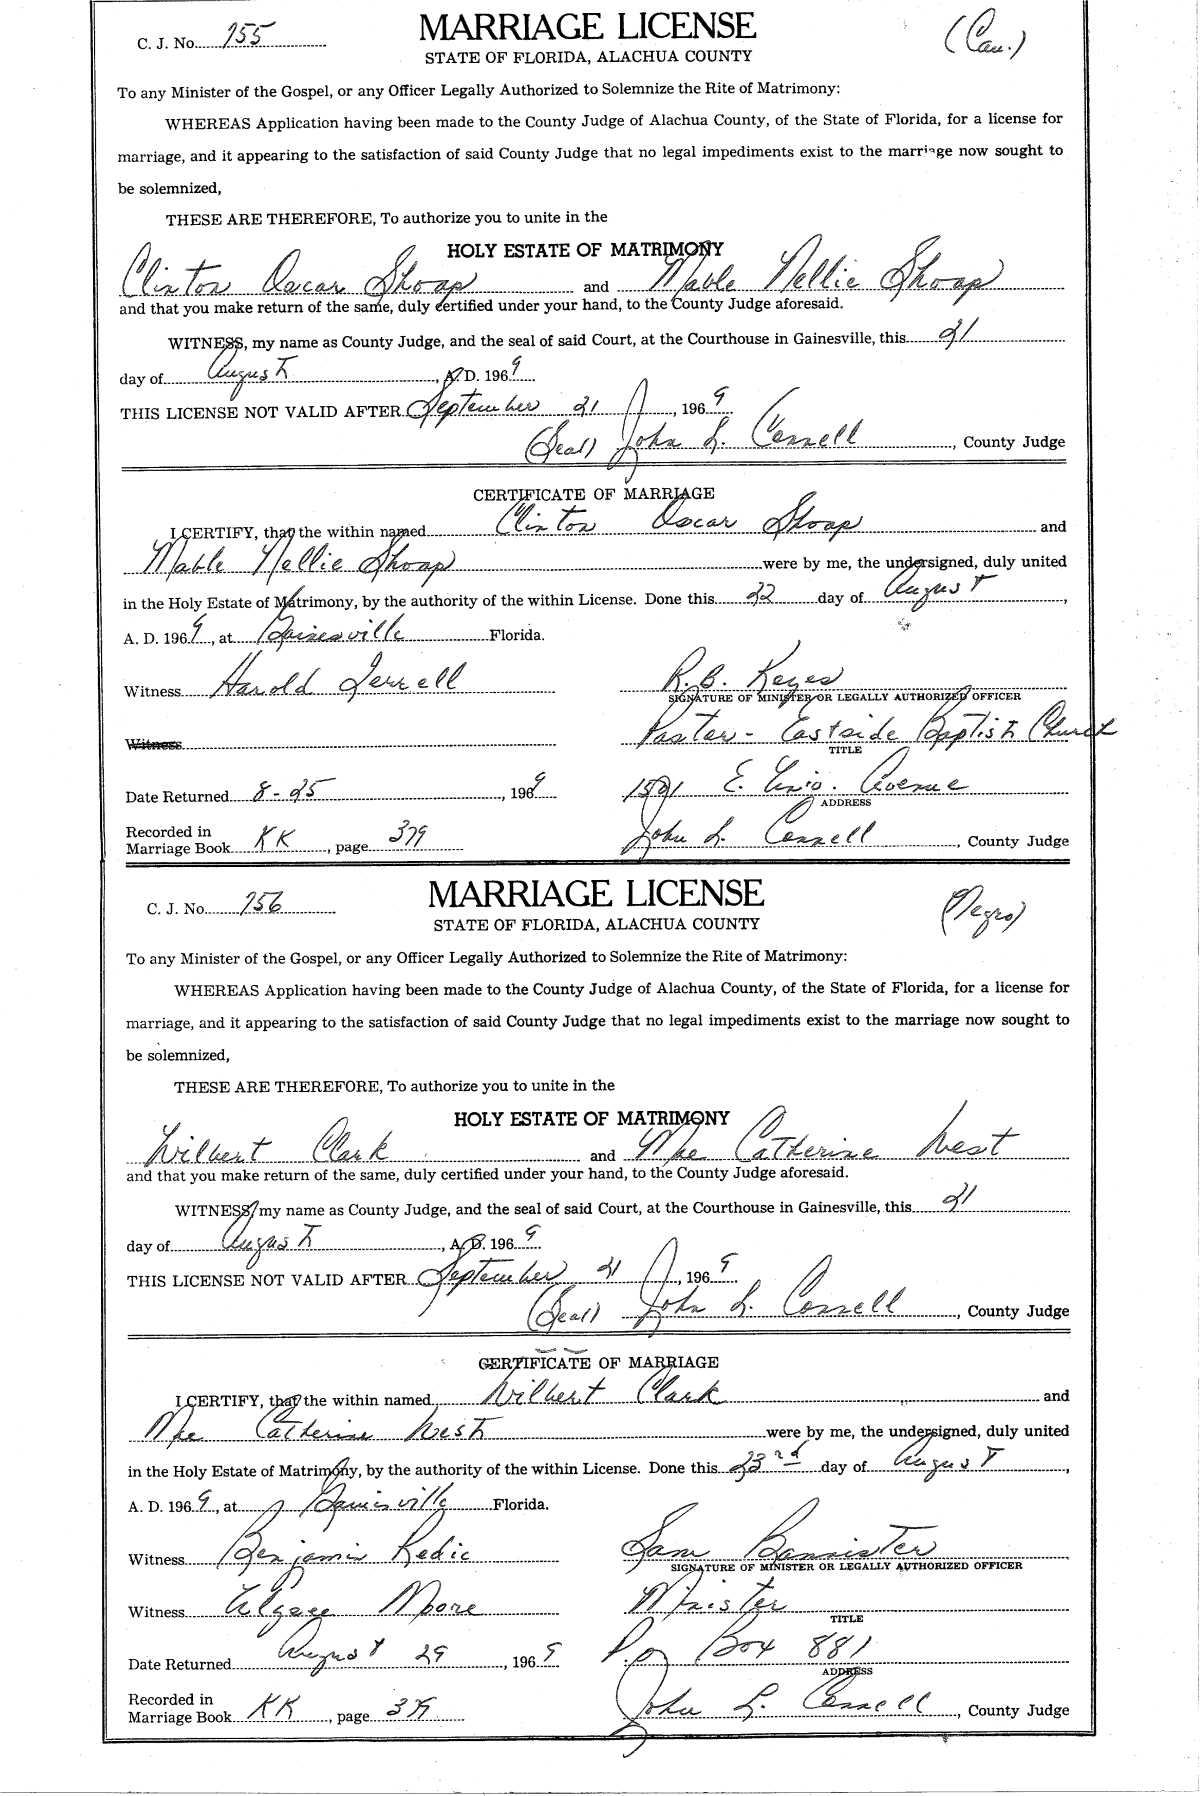 C. J. No. 755 MARRIAGE LICENSE (Cau.)
STATE OF FLORIDA, ALACHUA COUNTY
To any Minister of the Gospel, or any Officer Legally Authorized to Solemnize the Rite of Matrimony:
WHEREAS Application having been made to the County Judge of Alachua County, of the State of Florida, for a license for
marriage, and it appearing to the satisfaction of said County Judge that no legal impediments exist to the marriage now sought to
be solemnized,
THESE ARE THEREFORE, To authorize you to unite in the
HOLY ESTATE OF MATRIMONY
Clinton Oscar Shoap and Mable Nellie Shoap
and that you make return of the same, duly certified under your hand, to the County Judge aforesaid.
WITNESS, my name as County Judge, and the seal of said Court, at the Courthouse in Gainesville, this 21
day of August, A. D. 1969
THIS LICENSE NOT VALID AFTER September 21, 1969
(Seal) John L. Connell, County Judge
CERTIFICATE OF MARRIAGE
I CERTIFY, that the within named Clinton Oscar Shoap and
Mable Nellie Shoap were by me, the undersigned, duly united
in the Holy Estate of Matrimony, by the authority of the within License. Done this 22 day of August,
A. D. 1969, at Gainesville Florida.
Witness Harold Jerrell R. B. Keyes
SIGNATURE OF MINISTER OR LEGALLY AUTHORIZED OFFICER
Witness Pastor - Eastside Baptist Church
TITLE
Date Returned 8-25, 1969 E. Avenue
ADDRESS
Recorded in
Marriage Book KK, page 379 John L. Connell, County Judge
C. J. No. 756 MARRIAGE LICENSE (Negro)
STATE OF FLORIDA, ALACHUA COUNTY
To any Minister of the Gospel, or any Officer Legally Authorized to Solemnize the Rite of Matrimony:
WHEREAS Application having been made to the County Judge of Alachua County, of the State of Florida, for a license for
marriage, and it appearing to the satisfaction of said County Judge that no legal impediments exist to the marriage now sought to
be solemnized,
THESE ARE THEREFORE, To authorize you to unite in the
HOLY ESTATE OF MATRIMONY
Wilbert Clark and Mae Catherine West
and that you make return of the same, duly certified under your hand, to the County Judge aforesaid.
WITNESS, my name as County Judge, and the seal of said Court, at the Courthouse in Gainesville, this 21
day of August, A. D. 1969
THIS LICENSE NOT VALID AFTER September 21, 1969
(Seal) John L. Connell, County Judge
CERTIFICATE OF MARRIAGE
I CERTIFY, that the within named Wilbert Clark and
Mae Catherine West were by me, the undersigned, duly united
in the Holy Estate of Matrimony, by the authority of the within License. Done this 23rd day of August,
A. D. 1969, at Gainesville Florida.
Witness Benjamin Redic Sam Bannister
SIGNATURE OF MINISTER OR LEGALLY AUTHORIZED OFFICER
Witness Moore Minister
TITLE
Date Returned August 29, 1969 P.O. Box 881
ADDRESS
Recorded in
Marriage Book KK, page 379 John L. Connell, County Judge